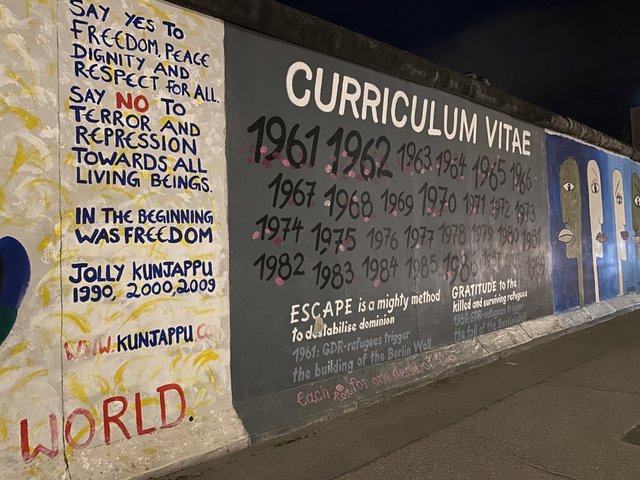 SAY YES TO
FREEDOM, PEACE
DIGNITY AND
RESPECT FOR ALL.
SAY NO TO
TERROR AND
REPRESSION
TOWARDS ALL
LIVING BEINGS.
IN THE BEGINNING
WAS FREEDOM
JOLLY KUNJAPPU
1990, 2000, 2009
WWW.KUNJAPPU.CO
WORLD.
CURRICULUM VITAE
1961 1962 1963 1964 1965 1966
1967 1968 1969 1970 1971 1972 1973
1974 1975 1976 1977 1978 1979 1980 1981
1982 1983 1984 1985 1986 1989
ESCAPE is a mighty method
to destabilise dominion
1961: GDR-refugees trigger
the building of the Berlin Wall
GRATITUDE to the
killed and surviving refugees
1989: GDR-refugees trigger
the fall of the Berlin Wall
each for one dead